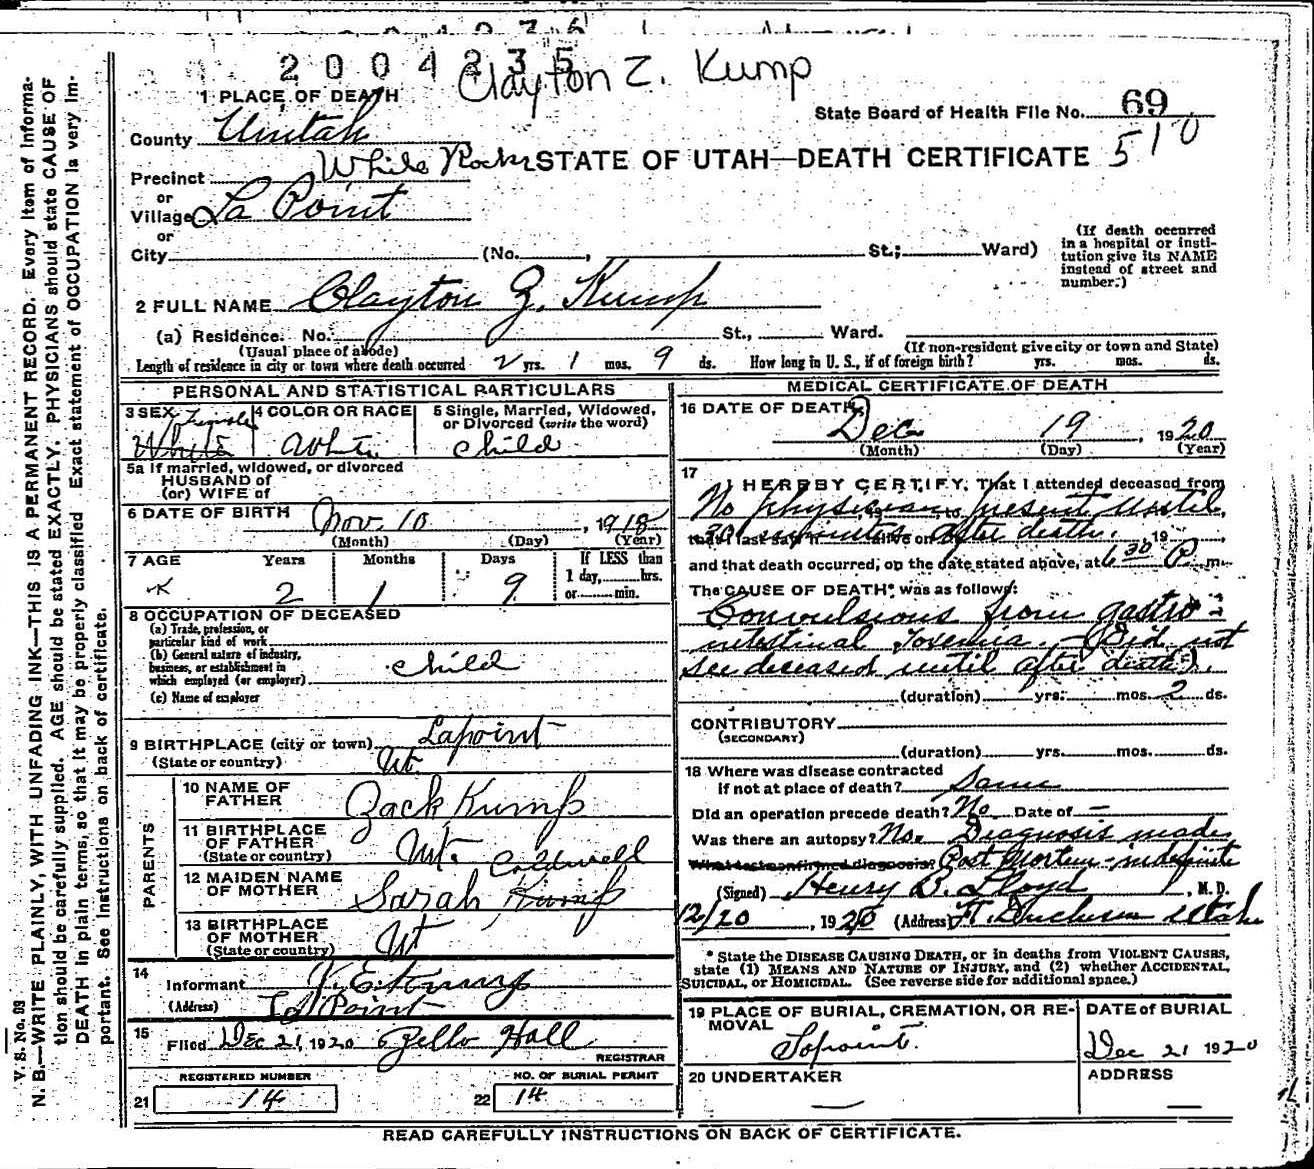 2004235
Clayton Z. Kump
1 PLACE OF DEATH
State Board of Health File No. 69
510
County Uintah
STATE OF UTAH—DEATH CERTIFICATE
Precinct White Rocks
or
Village La Point
or
City (No. , St.; Ward)
(If death occurred in a hospital or insti-
tution give its NAME instead of street and number.)
2 FULL NAME Clayton Z. Kump
(a) Residence. No. St., Ward.
(Usual place of abode) (If non-resident give city or town and State)
Length of residence in city or town where death occurred 2 yrs. 1 mos. 9 ds. How long in U. S., if of foreign birth? yrs. mos. ds.
PERSONAL AND STATISTICAL PARTICULARS
3 SEX Female White
4 COLOR OR RACE White
5 Single, Married, Widowed, or Divorced (write the word) child
5a If married, widowed, or divorced
HUSBAND of
(or) WIFE of
6 DATE OF BIRTH Nov. 10, 1918
(Month) (Day) (Year)
7 AGE Years Months Days If LESS than
1 day, hrs.
or min.
2 1 9
8 OCCUPATION OF DECEASED
(a) Trade, profession, or
particular kind of work
(b) General nature of industry,
business, or establishment in
which employed (or employer) child
(c) Name of employer
9 BIRTHPLACE (city or town) Lapoint
(State or country) Ut.
PARENTS
10 NAME OF FATHER Zack Kump
11 BIRTHPLACE OF FATHER (State or country) Ut.
12 MAIDEN NAME OF MOTHER Sarah Kump Caldwell
13 BIRTHPLACE OF MOTHER (State or country) Ut
14 Informant Kump
(Address) La Point
15 Filed Dec 21, 1920 Zella Hall
REGISTRAR
REGISTERED NUMBER NO. OF BURIAL PERMIT
21 14 22 14
MEDICAL CERTIFICATE OF DEATH
16 DATE OF DEATH Dec 19, 1920
(Month) (Day) (Year)
17 I HEREBY CERTIFY, That I attended deceased from
No physician present until
30 minutes after death.
and that death occurred, on the date stated above, at 6 30 P. m.
The CAUSE OF DEATH* was as follows:
Convulsions from gastro-
intestinal Toxemia – (Did not
see deceased until after death).
(duration) yrs. mos. 2 ds.
CONTRIBUTORY
(SECONDARY)
(duration) yrs. mos. ds.
18 Where was disease contracted
if not at place of death? Same
Did an operation precede death? No Date of –
Was there an autopsy? No. Diagnosis made
What test confirmed diagnosis? Post Mortem – indefinite
(Signed) Henry B. Lloyd, M.D.
12/20, 1920 (Address) Ft. Duchesne Utah
* State the DISEASE CAUSING DEATH, or in deaths from VIOLENT CAUSES,
state (1) MEANS AND NATURE OF INJURY, and (2) whether ACCIDENTAL,
SUICIDAL, or HOMICIDAL. (See reverse side for additional space.)
19 PLACE OF BURIAL, CREMATION, OR RE-
MOVAL Lapoint.
DATE of BURIAL
Dec 21 1920
20 UNDERTAKER —
ADDRESS —
READ CAREFULLY INSTRUCTIONS ON BACK OF CERTIFICATE.
V. S. No. 93
N. B.—WRITE PLAINLY, WITH UNFADING INK—THIS IS A PERMANENT RECORD. Every item of informa-
tion should be carefully supplied. AGE should be stated EXACTLY. PHYSICIANS should state CAUSE OF
DEATH in plain terms, so that it may be properly classified. Exact statement of OCCUPATION is very im-
portant. See instructions on back of certificate.